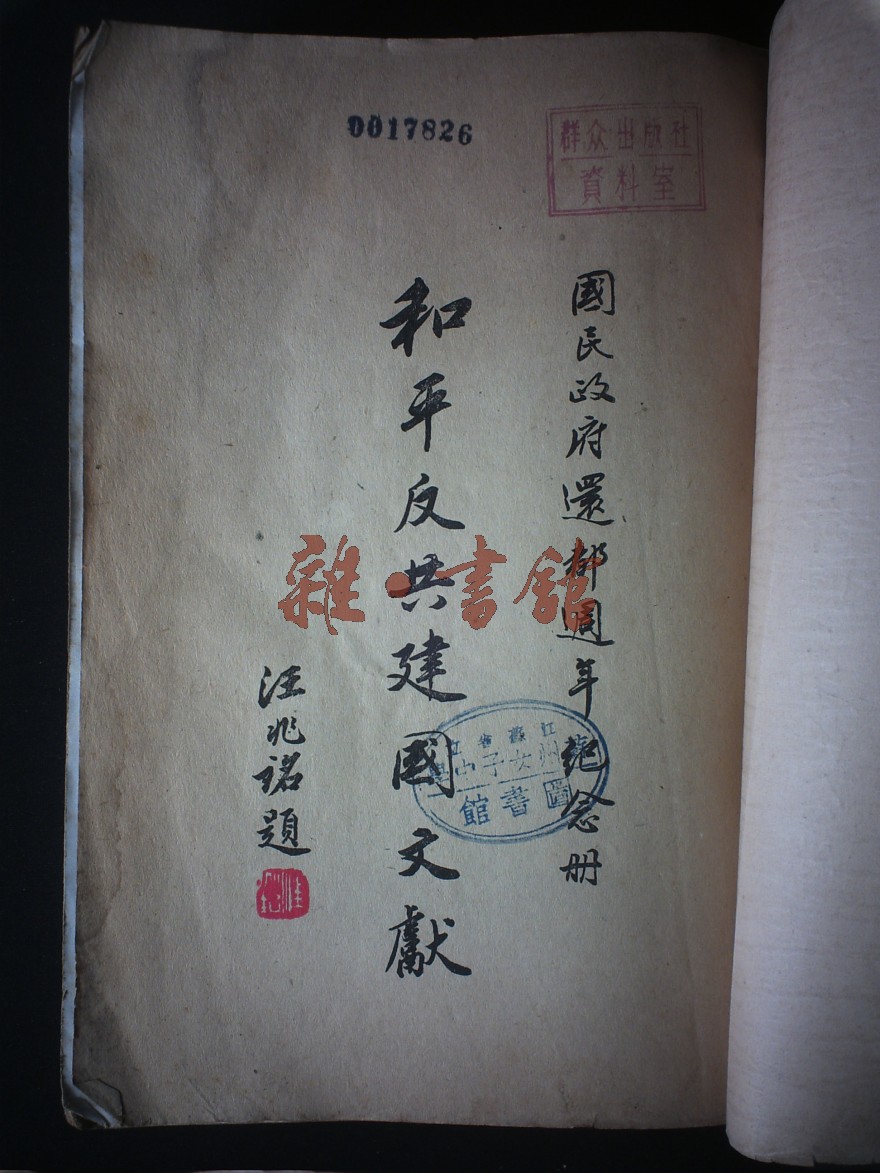 0017826
群众出版社
資料室
國民政府還都週年紀念册
和平反共建國文獻
汪兆銘題
江蘇省立
州女子中學
圖書館
雜·書館